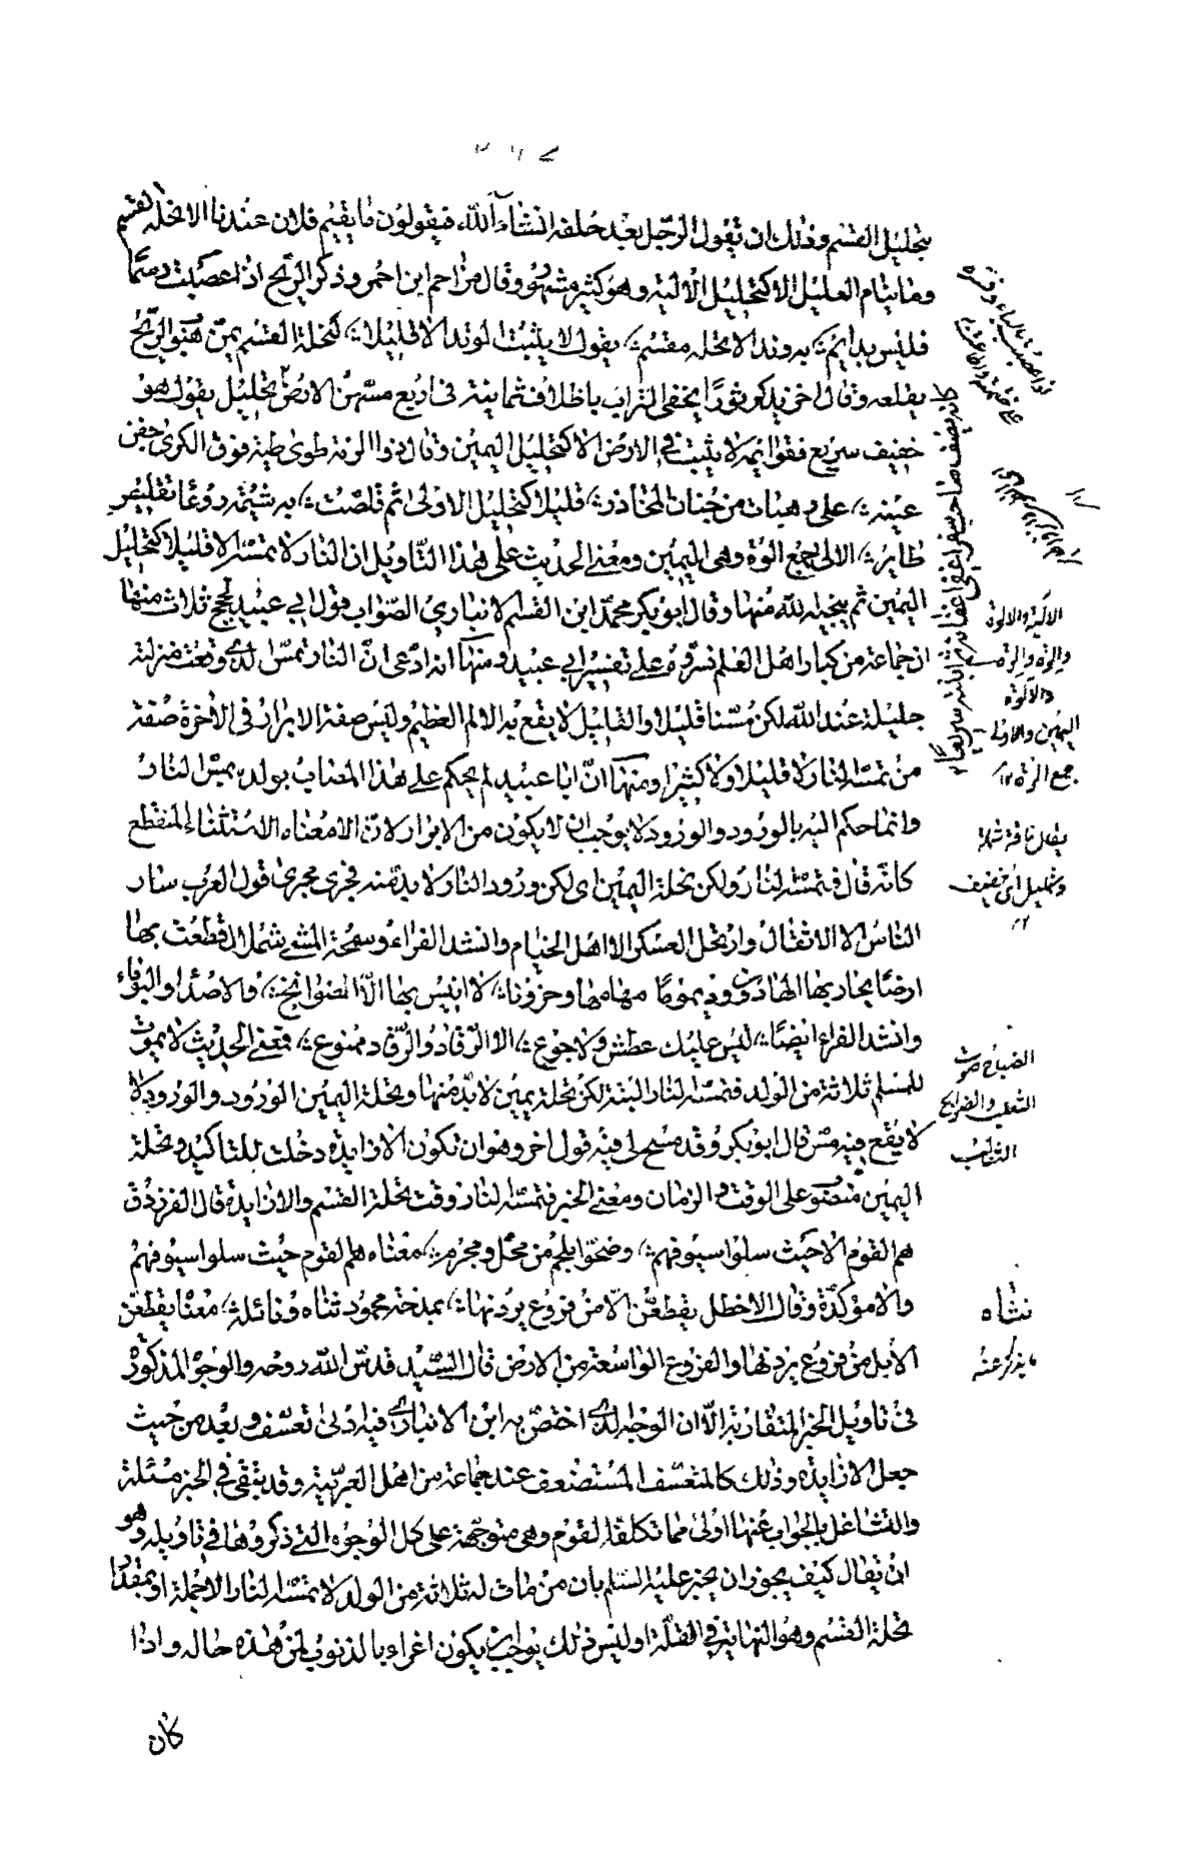 بتحليل القسم وذلك ان تقول الرجل بعد حلفه انشاء الله فيقولون ما يقيم فلان عندنا الا تحلة القسم
وما ينام العليل الا كتحليل الالية وهو كثير مشهور وقال مزاحم ابن احمر وذكر الريح اذا عصبت رسما
فليس بدايم به وتد الا تحلة مقسم يقول لا يثبت الوتد الا قليلا كتحلة القسم لان هبوب الريح
يقلعه وقال اخر يذكر ثورا يخفي التراب باظلاف ثمانية في اربع مسهن الارض تحليل يقول هو
خفيف سريع فقوائمه لا يثبت في الارض الا كتحليل اليمين وقال ذوا الرمة طوى طية فوق الكرى جفن
عينه على رهبات من جنان المحاذر قليلا كتحليل الاولى ثم قلصت به شيمة روعاء تقليص
طاير الالى جمع الوة وهى اليمين ومعنى الحديث على هذا التاويل ان النار لا تمسه الا قليلا كتحليل
اليمين ثم ينجيه الله منها وقال ابو بكر محمد ابن القسم الانباري الصواب قول ابي عبيد لحجج ثلاث منها
ان جماعة من كبار اهل العلم فسروه على تفسير ابي عبيد ومنها انه ادعى ان النار تمس الذي وقعت منزلته
جليلة عند الله لكن مسا قليلا والقليل لا يقع به الالم العظيم وليس صفة الابرار في الاخرة صفة
من تمسه النار لا قليلا ولا كثيرا ومنها ان ابا عبيد لم يحكم على هذا المصاب بولده بمس النار
وانما حكم اليه بالورود والورود لا يوجب ان لا يكون من الابرار لان الا معناه الاستثناء المنقطع
كانه قال فتمسه النار ولكن تحلة اليمين اى لكن ورود النار لا بد منه فجرى مجرى قول العرب سار
الناس الا الاثقال وارتحل العسكر الا اهل الخيام وانشد الفراء وسمحة المشي شملال قطعت بها
ارضا يحار بها الهادون ديموما مهامها وحزونا لا انيس بها الا الضوابح والاصداء والبوما
وانشد الفراء ايضا ليس عليك عطش ولا جوع الا الرقاد والرقاد ممنوع فمعنى الحديث لا يموت
للمسلم ثلاثة من الولد فتمسه النار البتة لكن تحلة يمين لا بد منها وتحلة اليمين الورود والورود لا
لا يقع فيه مس قال ابو بكر وقد سنح لي فيه قول اخر وهو ان تكون الا زايدة دخلت للتاكيد وتحلة
اليمين منصوبة على الوقت والزمان ومعنى الخبر فتمسه النار وقت تحلة القسم والا زايدة قال الفرزدق
هم القوم الا حيث سلوا سيوفهم وضحوا بلحم من محل ومجرم معناه هم القوم حيث سلوا سيوفهم
والا مؤكدة وقال الاخطل يقطعن الا من فروع يردنها بمدحة محمود نثاه ونائله معناه يقطعن
الابل من فروع يردنها والفروع الواسعة من الارض قال السيد قدس الله روحه والوجوه المذكورة
في تاويل الخبر المتقاربة الا ان الوجه الذي اختص به ابن الانباري فيه ادنى تعسف وبعد من حيث
جعل الا زايدة وذلك كالمتعسف المستضعف عند جماعة من اهل العربية وقد يبقى في الخبر مسئلة
والتشاغل بالجواب عنها اولى مما تكلفه القوم وهى متوجهة على كل الوجوه التي ذكروها في تاويله وهو
ان يقال كيف يجوز ان يخبر عليه السلم بان من مات له ثلاثة من الولد لا تمسه النار الا جملة او بمقدار
تحلة القسم وهو النهاية في القلة اوليس ذلك يوجب ان يكون اغراء بالذنوب لمن هذه حاله واذا
كان
كانه يصف صاحب سفر
الالية والالوة
اليمين والاولى
جمع الوة ١٢
يقال ناقة شملة
وشمليل اى خفيف
١٢
الضباح صوت
الثعلب والضوابح
الثعالب
نثاه
ما يذكر عنه